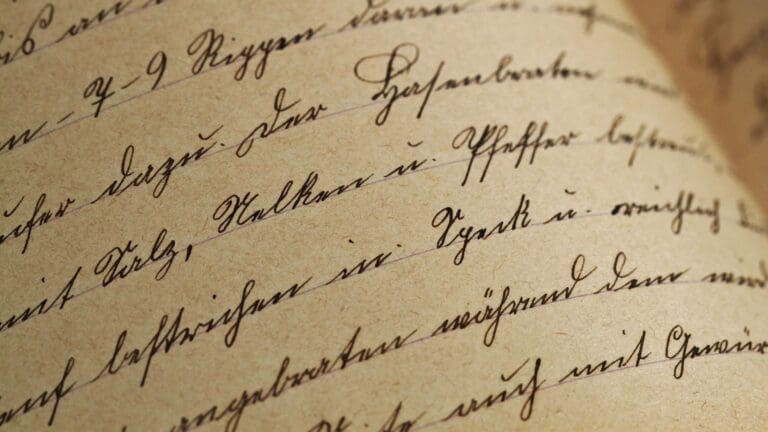 bis an
7-9 Rippen daran u.
dazu. Der Hasenbraten
mit Salz, Nelken u. Pfeffer bestreut,
bestrichen in Speck u. reichlich
angebraten während dem wird
auch mit Gewür